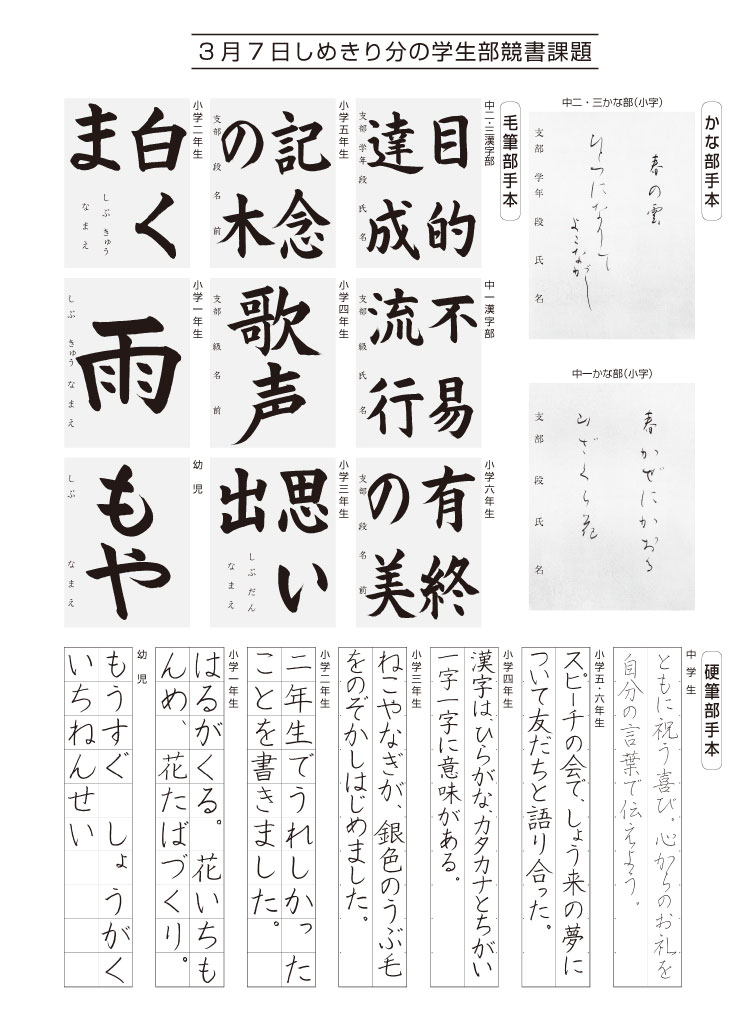 3月7日しめきり分の学生部競書課題
かな部手本
中二・三かな部(小字)
春の雲
ひとつになりて
よこながし
支部 学年 段 氏 名
中一かな部(小字)
春かぜにかおる
山ざくら花
支部 段 氏 名
毛筆部手本
中二・三漢字部
目的
達成
支部 学年 段 氏 名
小学五年生
記念
の木
支部 段 名 前
小学二年生
白く
ま
しぶ きゅう
なまえ
中一漢字部
不易
流行
支部 級 氏 名
小学四年生
歌声
支部 級 名 前
小学一年生
雨
しぶ きゅう なまえ
小学六年生
有終
の美
支部 段 名 前
小学三年生
思い
出
しぶ だん
なまえ
幼児
もや
しぶ なまえ
硬筆部手本
中学生
ともに祝う喜び。心からのお礼を
自分の言葉で伝えよう。
小学五・六年生
スピーチの会で、しょう来の夢に
ついて友だちと語り合った。
小学四年生
漢字は、ひらがな、カタカナとちがい
一字一字に意味がある。
小学三年生
ねこやなぎが、銀色のうぶ毛
をのぞかしはじめました。
小学二年生
二年生でうれしかった
ことを書きました。
小学一年生
はるがくる。花いちも
んめ、花たばづくり。
幼児
もうすぐ しょうがく
いちねんせい